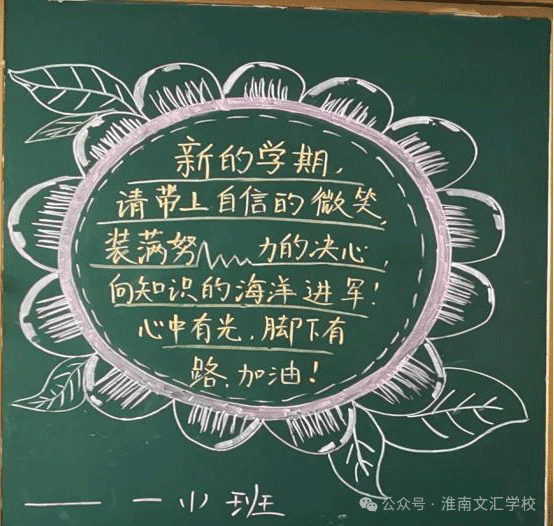 新的学期,
请带上自信的微笑,
装满努力的决心,
向知识的海洋进军!
心中有光,脚下有
路、加油!
一小班
公众号·淮南文汇学校